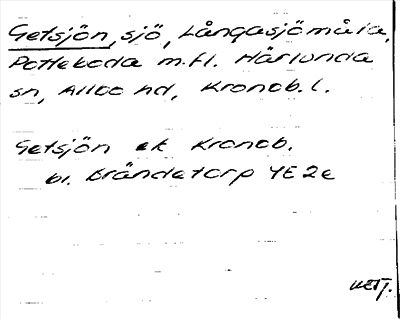 Getsjön, sjö, Långasjömåla,
Potteboda m.fl. Härlunda
sn, Allbo hd, Kronob. l.
Getsjön ek Kronob.
bl. Brändetorp 4E2e